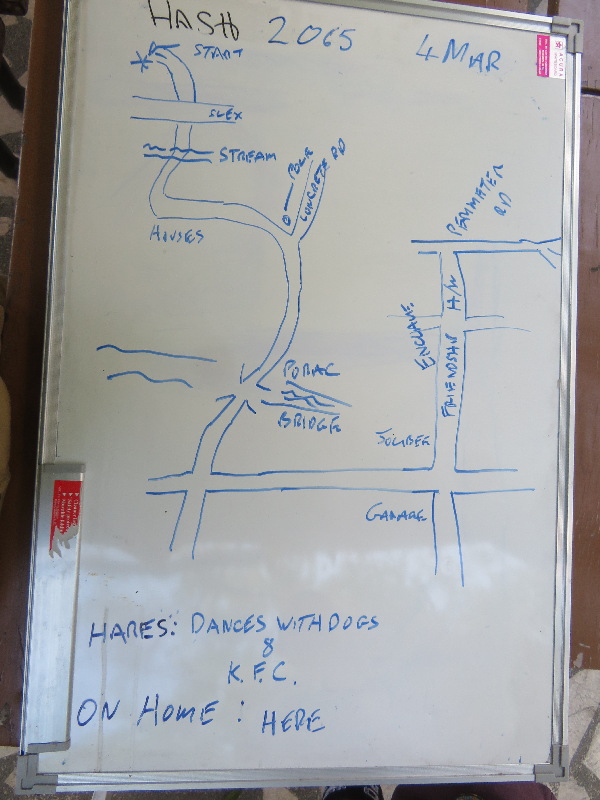 HASH 2065 4 MAR
START
SLEX
STREAM
POLE
CONCRETE RD
HOUSES
PERIMETER
RD
FRIENDSHIP H/W
ENCLAVE
PORAC
BRIDGE
JOLIBEE
GARAGE
HARES: DANCES WITH DOGS
&
K.F.C.
ON HOME: HERE